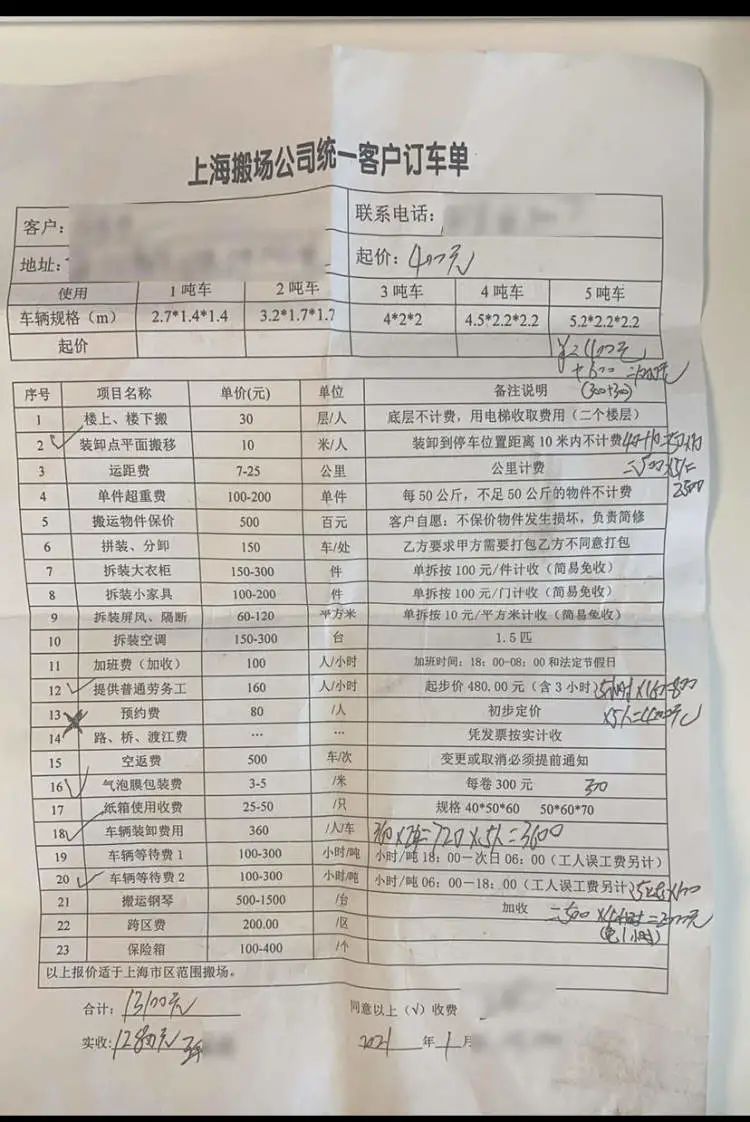 上海搬场公司统一客户订车单
客户: 联系电话:
地址: 起价: 400元
使用 1吨车 2吨车 3吨车 4吨车 5吨车
车辆规格（m） 2.7*1.4*1.4 3.2*1.7*1.7 4*2*2 4.5*2.2*2.2 5.2*2.2*2.2
起价 ¥2400元
+600
(300+300)
序号 项目名称 单价(元) 单位 备注说明
1 楼上、楼下搬 30 层/人 底层不计费，用电梯收取费用（二个楼层）
2 装卸点平面搬移 10 米/人 装卸到停车位置距离 10 米内不计费
=500×5人=
2500
3 运距费 7-25 公里 公里计费
4 单件超重费 100-200 单件 每 50 公斤，不足 50 公斤的物件不计费
5 搬运物件保价 500 百元 客户自愿: 不保价物件发生损坏，负责简修
6 拼装、分卸 150 车/处 乙方要求甲方需要打包乙方不同意打包
7 拆装大衣柜 150-300 件 单拆按 100 元/件计收（简易免收）
8 拆装小家具 100-200 件 单拆按 100 元/门计收（简易免收）
9 拆装屏风、隔断 60-120 平方米 单拆按 10 元/平方米计收（简易免收）
10 拆装空调 150-300 台 1.5 匹
11 加班费（加收） 100 人/小时 加班时间: 18: 00-08: 00 和法定节假日
12 提供普通劳务工 160 人/小时 起步价 480.00 元（含 3 小时） 5小时×160=800
×5人=4000元
13 预约费 80 /人 初步定价
14 路、桥、渡江费 … … 凭发票按实计收
15 空返费 500 车/次 变更或取消必须提前通知
16 气泡膜包装费 3-5 /米 每卷 300 元 300
17 纸箱使用收费 25-50 /只 规格 40*50*60 50*60*70
18 车辆装卸费用 360 /人/车 360×2车=720×5人=3600
19 车辆等待费 1 100-300 小时/吨 小时/吨 18: 00—次日 06: 00（工人误工费另计）
20 车辆等待费 2 100-300 小时/吨 小时/吨 06: 00—18: 00（工人误工费另计）
21 搬运钢琴 500-1500 /台 加收
=500×4小时=2000元
(免1小时)
22 跨区费 200.00 /区
23 保险箱 100-400 /个
以上报价适于上海市区范围搬场。
合计: 13100元 同意以上（√）收费
实收: 12800元 2021 年 1 月